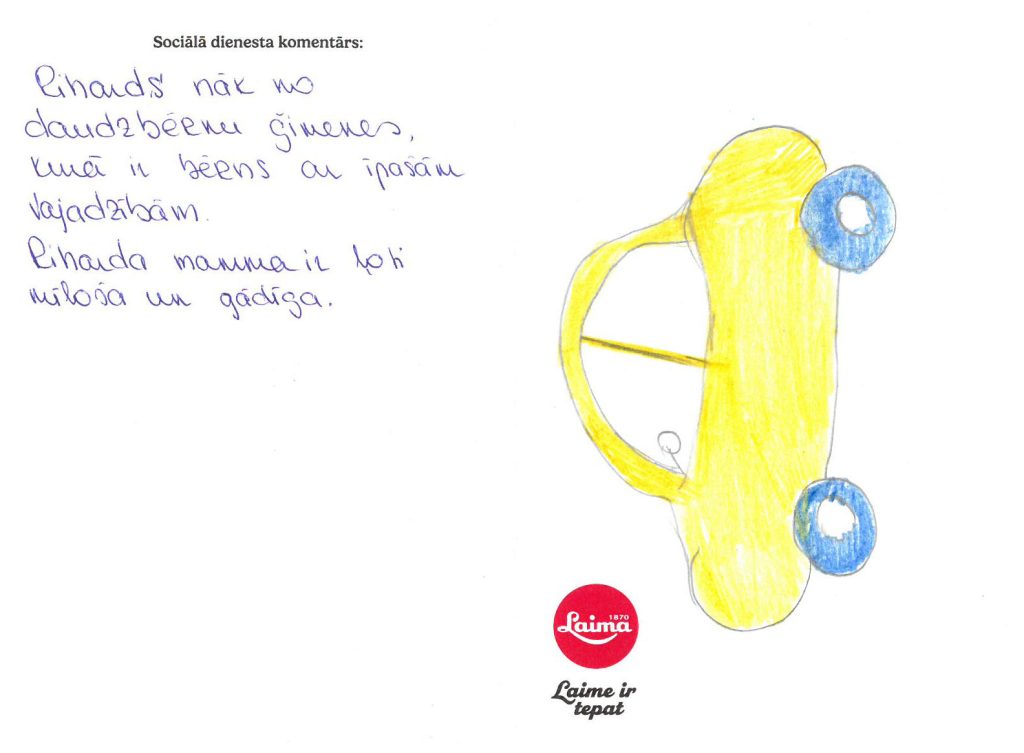 Sociālā dienesta komentārs:
Rihards nāk no
daudzbērnu ģimenes,
kurā ir bērns ar īpašām
vajadzībām.
Riharda mamma ir ļoti
mīloša un gādīga.
1870
Laima
Laime ir
tepat